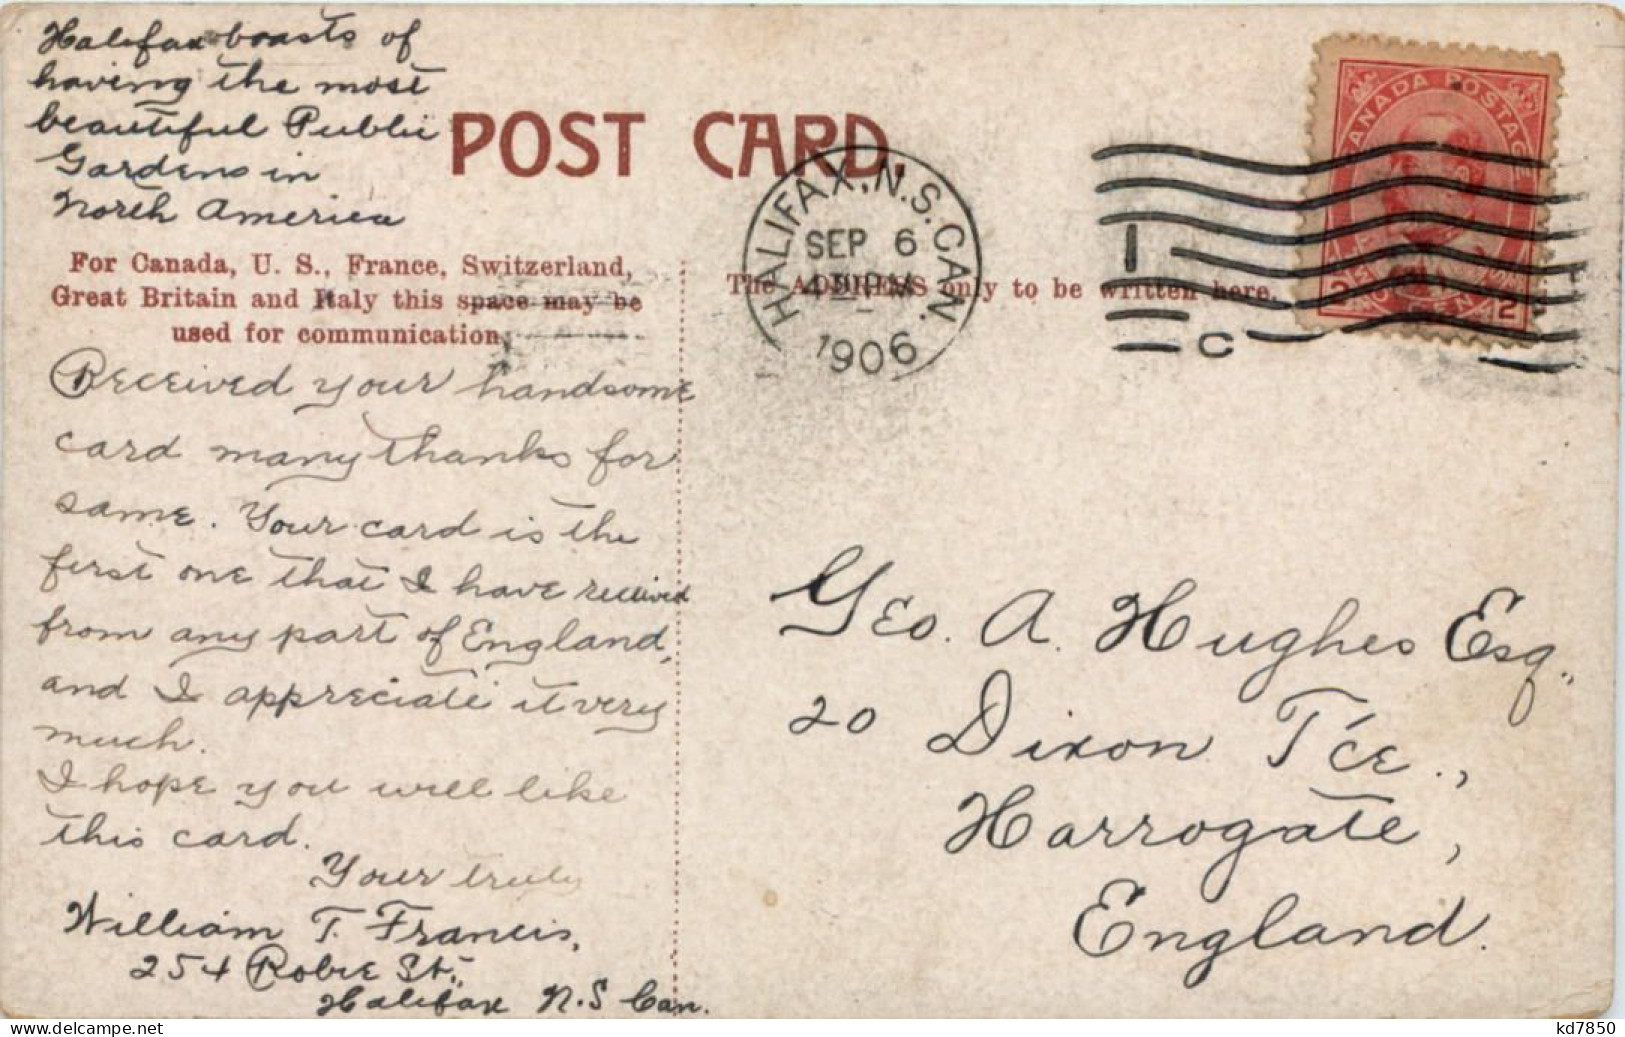 Halifax boasts of
having the most
beautiful Public
Gardens in
North America
POST CARD.
For Canada, U. S., France, Switzerland,
Great Britain and Italy this space may be
used for communication.
The ADDRESS only to be written here.
HALIFAX, N.S. CAN.
SEP 6
1906
I
C
CANADA POSTAGE
2
2
Received your handsome
card many thanks for
same. Your card is the
first one that I have received
from any part of England,
and I appreciate it very
much.
I hope you will like
this card.
Your truly
William T. Francis,
254 Robie St.,
Halifax N.S Can.
Geo. A. Hughes Esq.,
20 Dixon T'ce.,
Harrogate,
England.
www.delcampe.net
kd7850